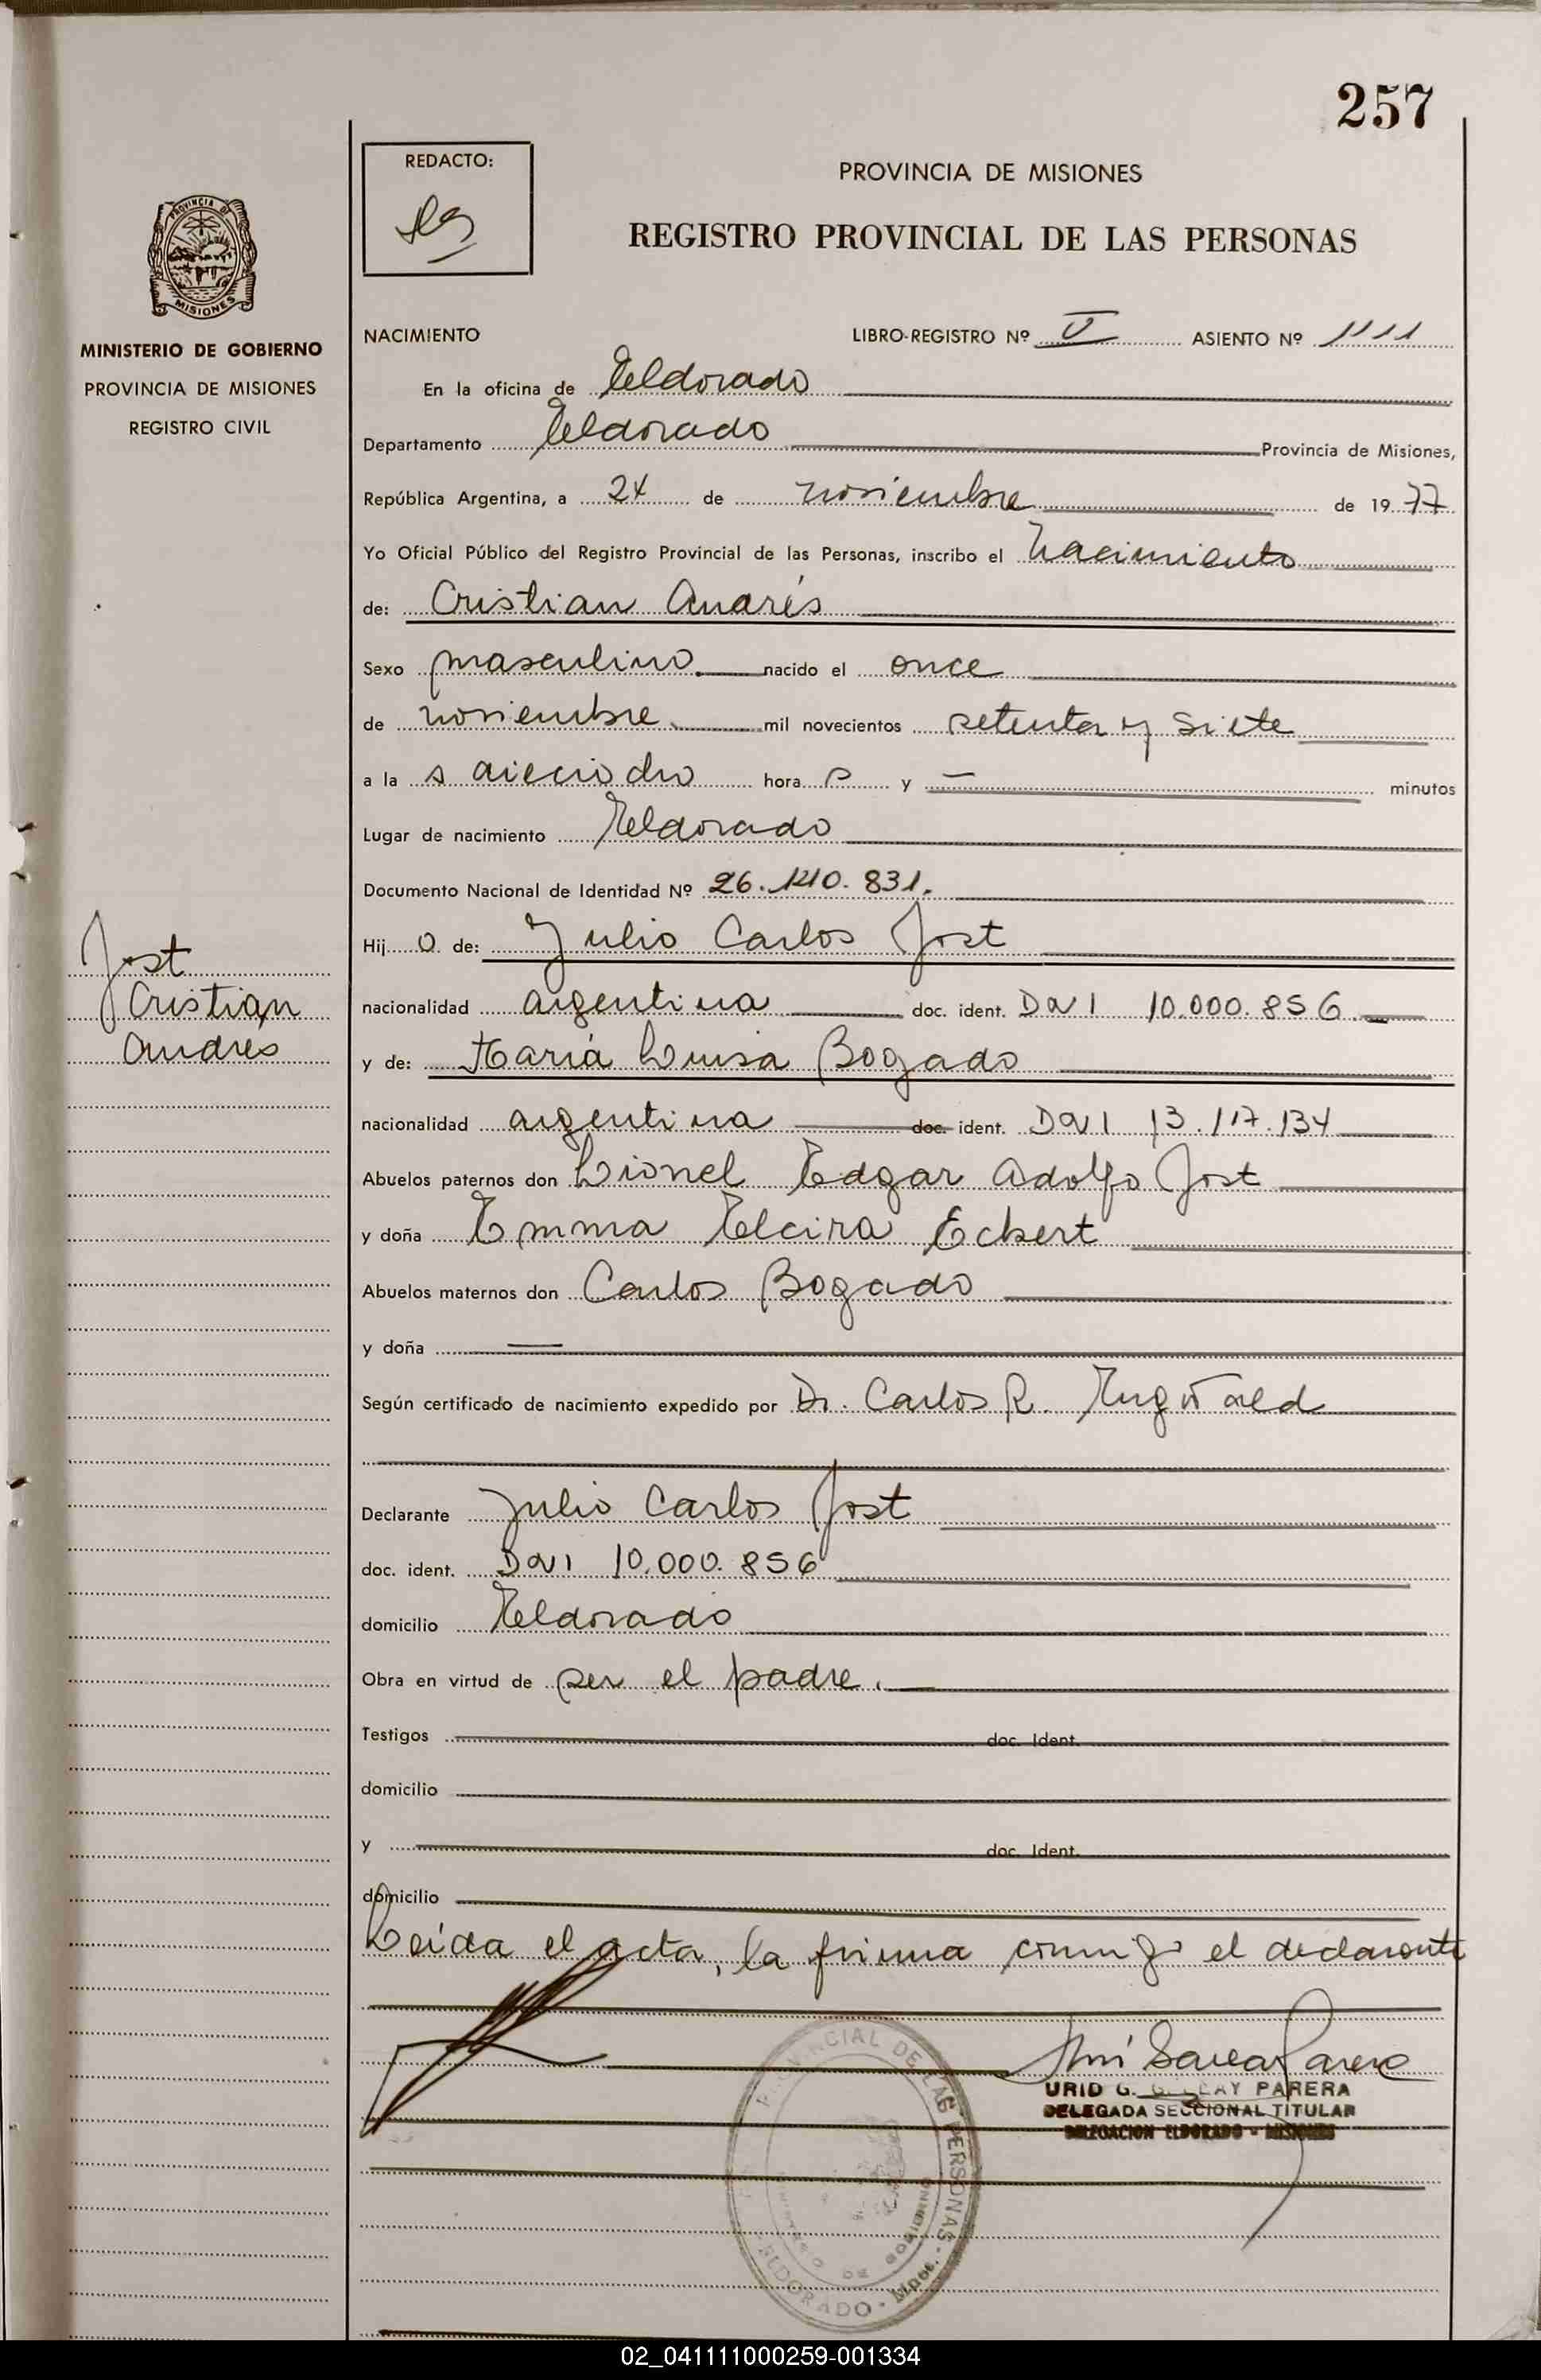 257
REDACTO:
PROVINCIA DE MISIONES
REGISTRO PROVINCIAL DE LAS PERSONAS
PROVINCIA DE
MISIONES
MINISTERIO DE GOBIERNO
PROVINCIA DE MISIONES
REGISTRO CIVIL
NACIMIENTO LIBRO-REGISTRO Nº V ASIENTO Nº 1111
En la oficina de Eldorado
Departamento Eldorado Provincia de Misiones,
República Argentina, a 24 de noviembre de 1977
Yo Oficial Público del Registro Provincial de las Personas, inscribo el Nacimiento
de: Cristian Andrés
Sexo masculino nacido el once
de noviembre mil novecientos setenta y siete
a la s dieciocho hora s y — minutos
Lugar de nacimiento Eldorado
Documento Nacional de Identidad Nº 26.140.831.
Hij o de: Julio Carlos Jost
nacionalidad argentina doc. ident. DNI 10.000.856
y de: María Luisa Bogado
nacionalidad argentina doc. ident. DNI 13.117.134
Abuelos paternos don Lionel Edgar Adolfo Jost
y doña Emma Elcira Eckert
Abuelos maternos don Carlos Bogado
y doña —
Según certificado de nacimiento expedido por Dr. Carlos R.
Declarante Julio Carlos Jost
doc. ident. DNI 10.000.856
domicilio Eldorado
Obra en virtud de ser el padre.
Testigos doc. Ident.
domicilio
y doc. Ident.
domicilio
Leída el acta, la firma conmigo el declarante
URID G. PARERA
DELEGADA SECCIONAL TITULAR
DELEGACION ELDORADO - MISIONES
PROVINCIAL DE LAS PERSONAS
ELDORADO - Mnes.
Jost
Cristian
Andres
02_041111000259-001334